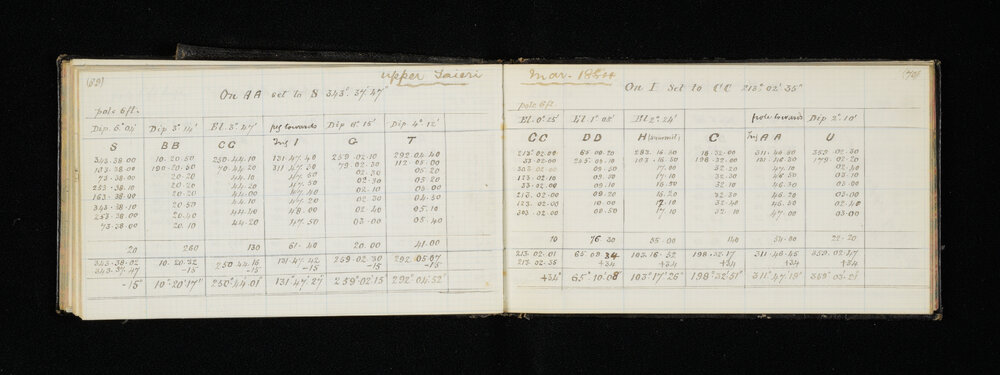 (69)
upper Taieri
On AA set to S 343° 37' 47"
pole 6ft.
Dip 6° 04' Dip 3° 14' El. 3° 47' peg towards Dip 6° 15' Dip 4° 12'
S BB CC Trig I G T
343.38.00 10.20.50 250.44.10 131.47.40 259.02.10 292.04.40
163.38.00 190.20.50 70.44.20 311.47.30 79.02.30 112.05.00
73.38.00 20.30 44.10 47.50 02.30 05.20
253.38.10 20.20 44.20 47.40 02.10 05.00
163.38.00 20.20 44.00 47.50 02.40 05.00
343.38.10 20.50 44.10 47.50 02.30 04.50
253.38.00 20.40 44.40 48.00 02.40 05.10
73.38.00 20.10 44.20 47.50 03.00 05.40
20 260 130 61.40 20.00 41.00
343.38.02 10.20.32 250.44.16 131.47.42 259.02.30 292.05.07
343.37.47 -15 -15 -15 -15 -15
-15" 10°20'17" 250°44'01 131°47'27" 259°02'15 292°04'52"
Mar. 1884
(70)
On I Set to CC 213° 02' 35"
pole 6ft.
El. 0° 15' El 1° 08' El 2° 24' pole towards Dip 2° 10'
CC DD H C Trig AA U
213.02.00 65.09.20 283.16.50 18.32.00 311.46.50 359.02.30
33.02.00 245.09.10 103.16.50 198.32.00 131.46.30 179.02.20
303.02.00 09.50 17.00 32.20 47.00 02.30
123.02.10 09.30 17.10 32.30 46.50 03.10
33.02.00 09.10 16.50 32.10 46.30 03.00
213.02.00 09.20 16.20 32.20 46.20 02.00
123.02.00 10.00 17.10 32.40 46.50 02.40
303.02.00 09.50 17.10 32.10 47.00 03.00
10 76.30 55.00 140 54.00 22.20
213.02.01 65.09.34 103.16.52 198.32.17 311.46.45 359.02.47
213.02.35 +34 +34 +34 +34 +34
+34" 65°10'08" 103°17'26" 198°32'51" 311°47'19" 359°03'21"